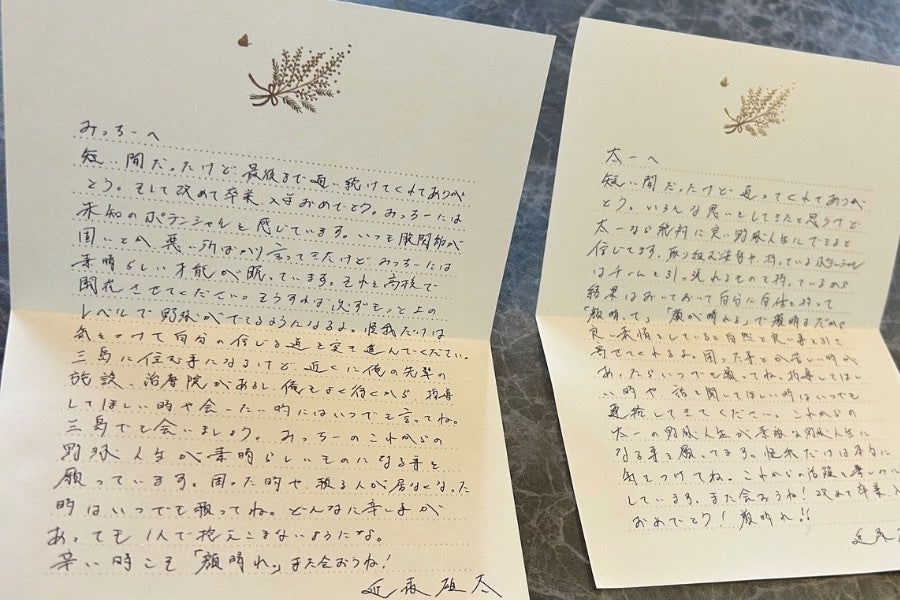 みっちーへ
短い間だったけど最後まで通い続けてくれてありが
とう。そして改めて卒業入学おめでとう。みっちーには
未知のポテンシャルを感じています。いつも股関節が
固いとか悪い所ばかり言ってきたけどみっちーには
素晴らしい才能が眠っています。それを高校で
開花させてください。そうすれば必ずもっと上の
レベルで野球ができるようになるよ。怪我だけは
気をつけて自分の信じる道を突き進んでください。
三島に住む事になるけど近くに俺の先輩の
施設、治療院があるし俺もよく行くから指導
してほしい時や会いたい時にはいつでも言ってね。
三島でも会いましょう。みっちーのこれからの
野球人生が素晴らしいものになる事を
願っています。困った時や頼る人が居なくなった
時はいつでも頼ってね。どんなに辛い事が
あっても1人で抱えこまないようにな。
辛い時こそ「顔晴れ」また会おうね!
雄太
太一へ
短い間だったけど通ってくれてありが
とう。いろんな思いをしてきたと思うけど
太一なら絶対に良い野球人生にできると
信じてます。取り組む姿勢や、持っているポテンシャル
はチームを引っ張れるものを持っているから
結果はおいておいて自分に自信を持って
「顔晴って」「顔が晴れる」で顔晴るだから
良い表情をしていると自然と良い事を引き
寄せてくれるよ。困った事とか苦しい時が
あったらいつでも頼ってね。指導してほし
い時や、話を聞いてほしい時はいつでも
連絡してきてください。これからの
太一の野球人生が素敵な野球人生に
なる事を願ってます。怪我だけは本当に
気をつけてね。これからの活躍を楽しみに
しています。また会おうね!改めて卒業入
おめでとう!顔晴れ!!